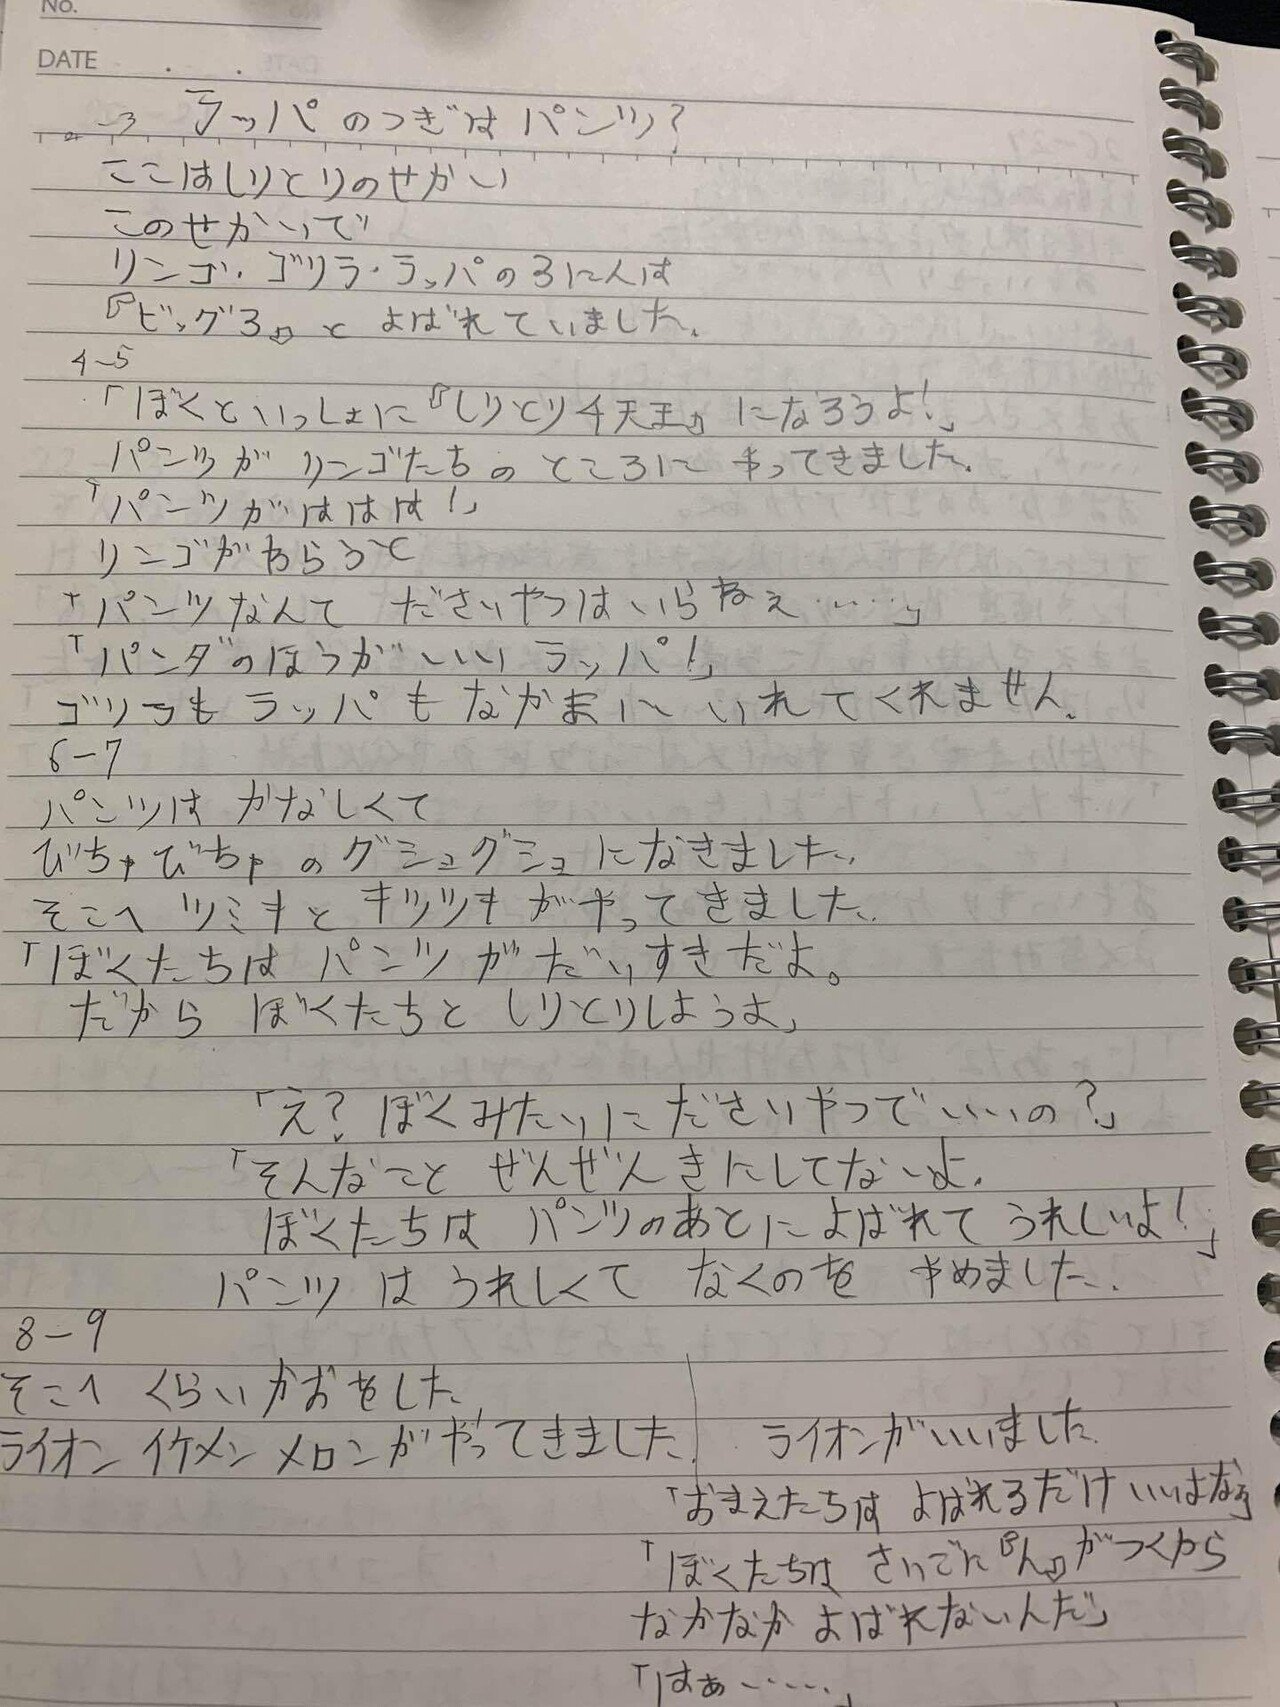 No.
DATE . .
2-3 ラッパのつぎはパンツ?
ここはしりとりのせかい
このせかいで
リンゴ・ゴリラ・ラッパの3にんは
『ビッグ3』と よばれていました。
4-5
「ぼくといっしょに『しりとり4天王』になろうよ!」
パンツが リンゴたちの ところに やってきました。
「パンツがははは!」
リンゴがわらうと
「パンツなんて ださいやつはいらねぇ……」
「パンダのほうがいい ラッパ!」
ゴリラも ラッパも なかまに いれてくれません。
6-7
パンツは かなしくて
びちゃびちゃのグシュグシュになきました。
そこへ ツミキと キツツキがやってきました。
「ぼくたちは パンツがだいすきだよ。
だから ぼくたちと しりとりしようよ」
「え? ぼくみたいに ださいやつでいいの?」
「そんなこと ぜんぜん きにしてないよ。
ぼくたちは パンツのあとによばれて うれしいよ!」
パンツは うれしくて なくのを やめました。
8-9
そこへ くらいかおをした
ライオン イケメン メロンがやってきました。
ライオンがいいました。
「おまえたちは よばれるだけ いいよなぁ」
「ぼくたちは さいごに『ん』がつくから
なかなか よばれないんだ」
「はぁ……」